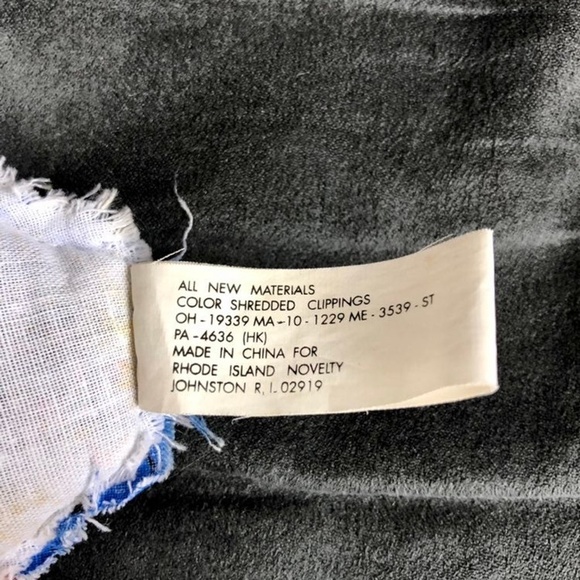 ALL NEW MATERIALS
COLOR SHREDDED CLIPPINGS
OH-19339 MA-10-1229 ME-3539-ST
PA-4636 (HK)
MADE IN CHINA FOR
RHODE ISLAND NOVELTY
JOHNSTON R.I. 02919